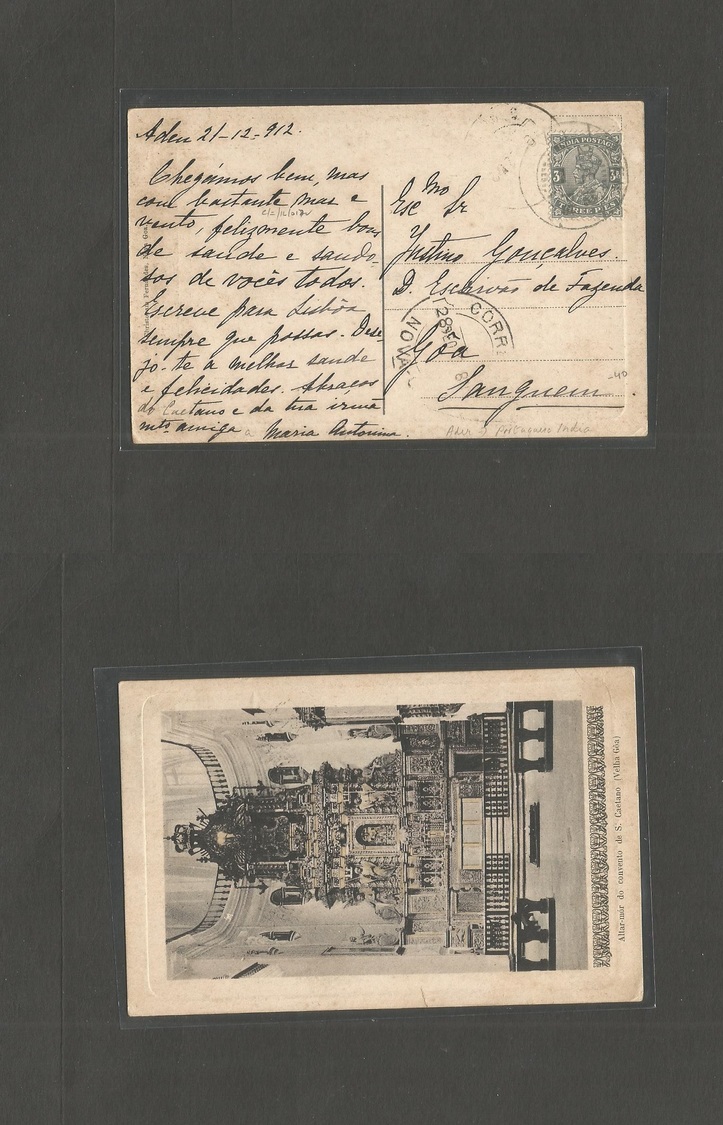 Aden 21-12-912.
Chegámos bem, mas
com bastante mar e
vento, felizmente bons
de saude e saudo-
sos de vocês todos.
Escreve para Lisbôa
sempre que possas. Dese-
jo-te a melhor saude
e felicidades. Abraços
do Caetano e da tua irmã
mtº amiga Maria Antonina.
INDIA POSTAGE
3 3
Exc mo Sr
Justino Gonçalves.
D. Escrivão de Fazenda
CORRE
28
NOVA
Gôa
Sanguem
-40
Aden Portuguese India
Altar-mór do convento de S. Caetano (Velha Gôa)